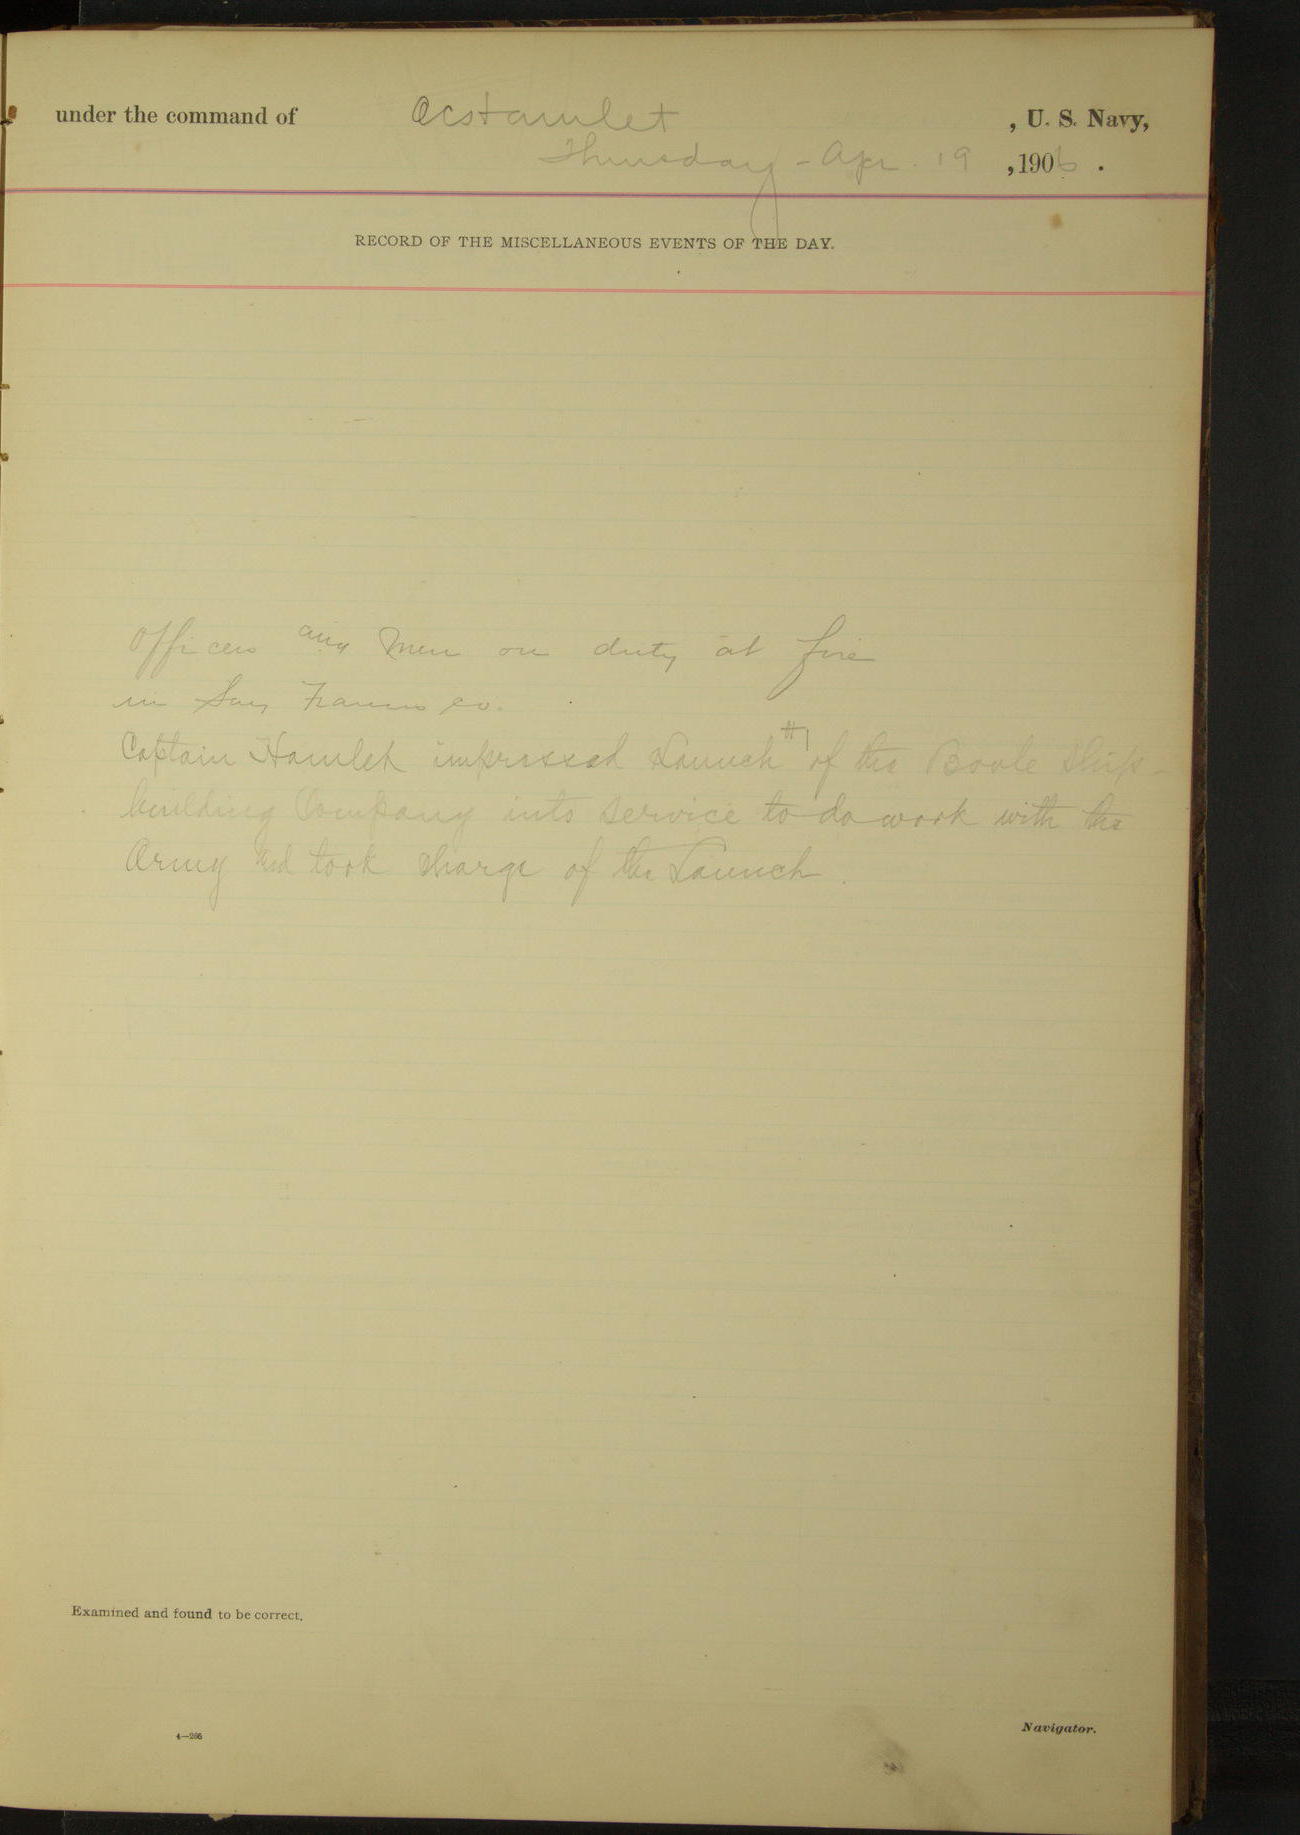 under the command of OCHamlet , U. S. Navy,
Thursday - Apr. 19 , 1906 .
RECORD OF THE MISCELLANEOUS EVENTS OF THE DAY.
Officers and Men on duty at fire
in San Francisco.
Captain Hamlet impressed Launch #1 of the Boole Ship-
building Company into service to do work with the
Army and took charge of the Launch.
Examined and found to be correct.
4—266
Navigator.